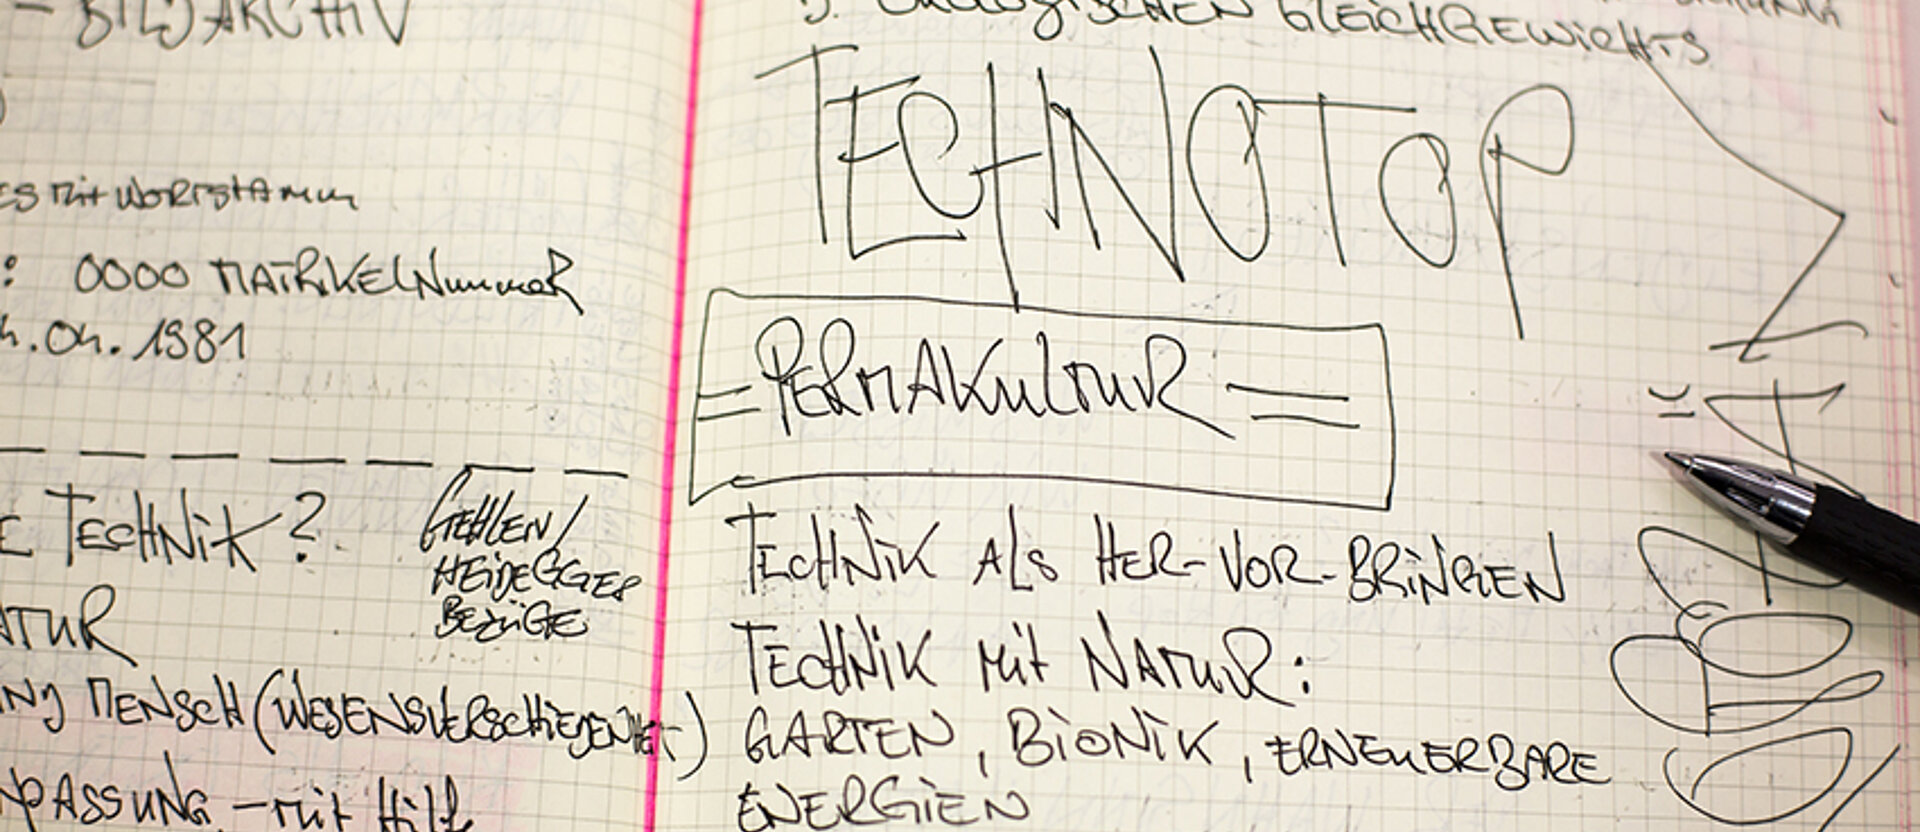 - BILDARCHIV
ES mit WORTSTAMM
: 0000 MATRIKELNummER
4.04.1981
E TECHNiK?
GEHLEN/
HEIDEGGER
BEZÜGE
ATUR
MENSCH (WESENSVERSCHIEDENHEIT)
NPASSUNG - mit Hilf
3. ÖKOLOGISCHEN GLEICHGEWICHTS
TECHNOTOP
= PERMAKULTUR =
TECHNIK ALS HER-VOR-BRINGEN
TECHNIK MIT NATUR:
GARTEN, BIONIK, ERNEUERBARE
ENERGIEN